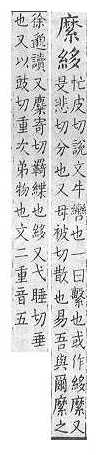 縻䋾忙皮切說文牛轡也一曰繫也或作䋾縻又
旻悲切分也又母被切散也易吾與爾縻之
徐邈讀又麋寄切羈緤也䋾又弋睡切垂
也又以豉切重次弟物也文二重音五